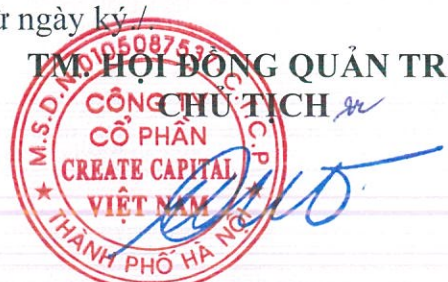 ừ ngày ký./.
TM. HỘI ĐỒNG QUẢN TR
CHỦ TỊCH
M.S.D.N:0105087537-C.T.C.P
CÔNG TY
CỔ PHẦN
CREATE CAPITAL
VIỆT NAM
THÀNH PHỐ HÀ NỘI